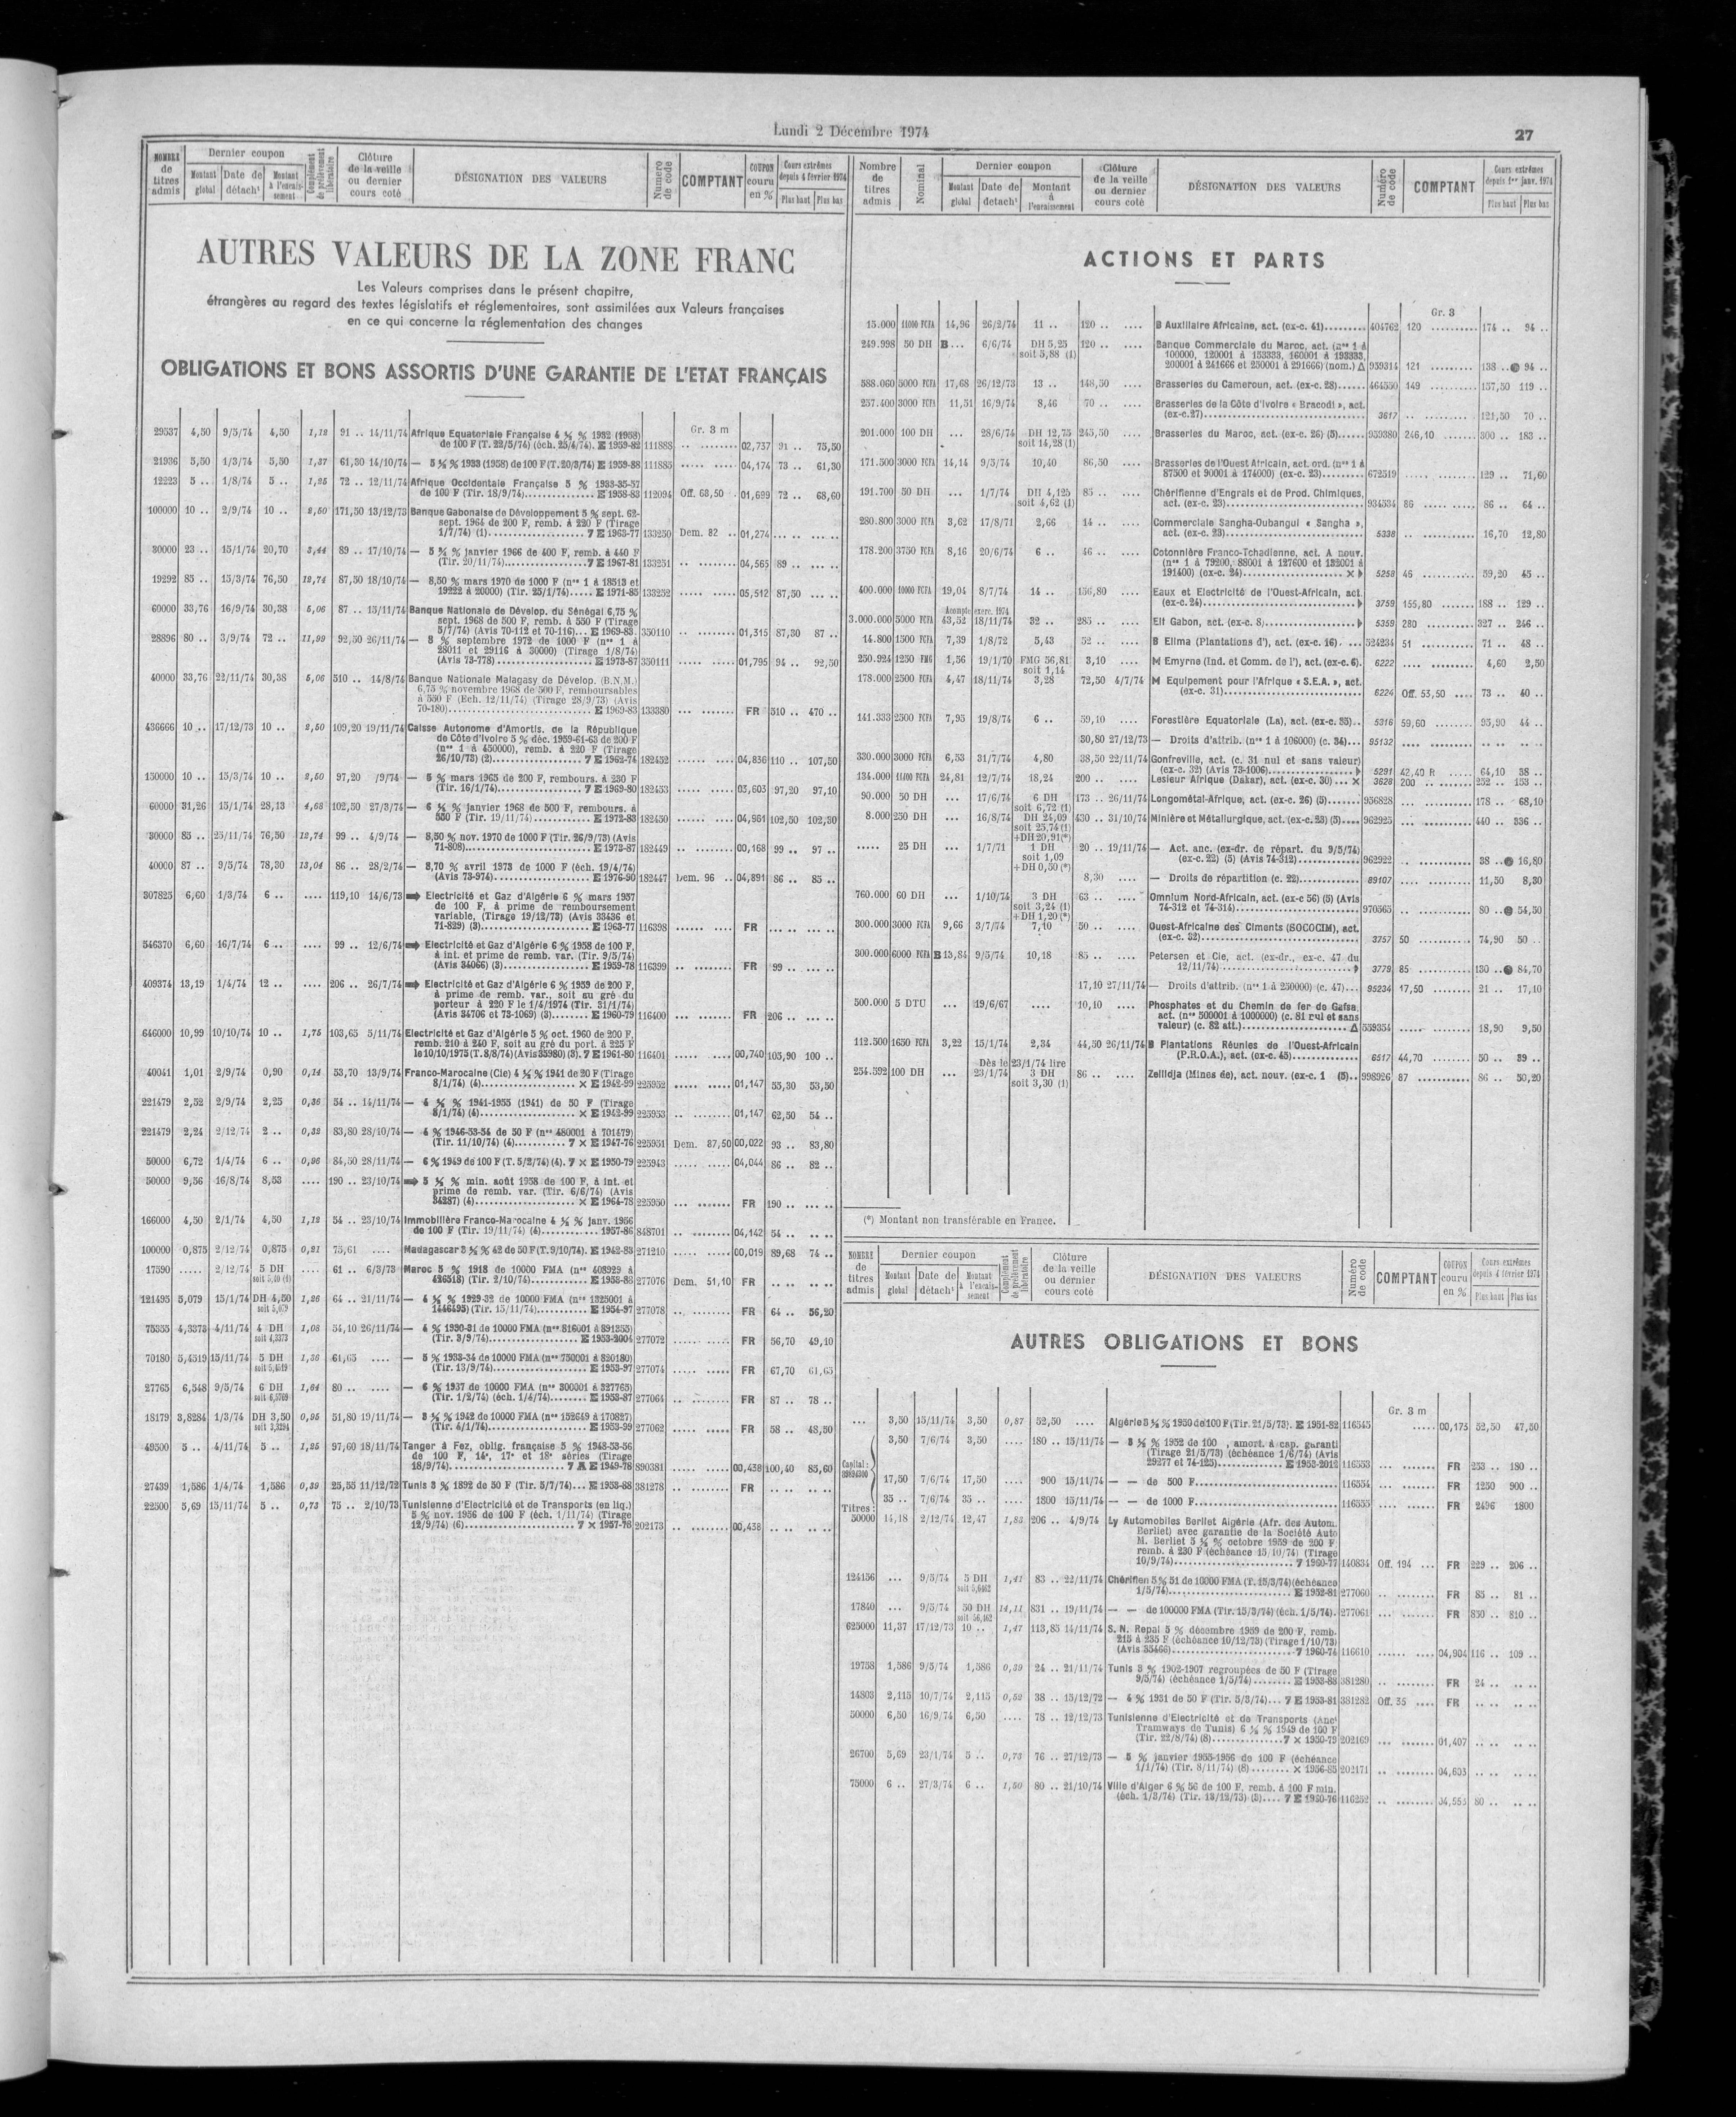 Lundi 2 Décembre 1974
27
NOMBRE de titres admis
Dernier coupon
Montant global
Date de détach^t
Montant à l'encaissement
Complément de prélèvement libératoire
Clôture de la veille ou dernier cours coté
DÉSIGNATION DES VALEURS
Numéro de code
COMPTANT
COUPON couru en %
Cours extrêmes depuis 4 février 1974
Plus haut
Plus bas
AUTRES VALEURS DE LA ZONE FRANC
Les Valeurs comprises dans le présent chapitre,
étrangères au regard des textes législatifs et réglementaires, sont assimilées aux Valeurs françaises
en ce qui concerne la réglementation des changes
OBLIGATIONS ET BONS ASSORTIS D'UNE GARANTIE DE L'ETAT FRANÇAIS
Gr. 3 m
29537 4,50 9/5/74 4,50 1,12 91 .. 14/11/74 Afrique Equatoriale Française 4 ½ % 1932 (1958)
de 100 F (T. 22/5/74) (éch. 25/4/74). E 1959-82 111888 .. ........ 02,737 91 .. 75,50
21936 5,50 1/3/74 5,50 1,37 61,30 14/10/74 — 5 ½ % 1933 (1958) de 100 F (T. 20/3/74) E 1959-88 111885 ..... ..... 04,174 73 .. 61,30
12223 5 .. 1/8/74 5 .. 1,25 72 .. 12/11/74 Afrique Occidentale Française 5 % 1933-35-57
de 100 F (Tir. 18/9/74)............... E 1958-83 112094 Off. 68,50 01,699 72 .. 68,60
100000 10 .. 2/9/74 10 .. 2,50 171,50 13/12/73 Banque Gabonaise de Développement 5 % sept. 62-
sept. 1964 de 200 F, remb. à 220 F (Tirage
1/7/74) (1)................... 7 E 1963-77 133250 Dem. 82 .. 01,274 ... .. ... ..
30000 23 .. 15/1/74 20,70 3,44 89 .. 17/10/74 — 5 ¾ % janvier 1966 de 400 F, remb. à 440 F
(Tir. 20/11/74).................7 E 1967-81 133251 .. ........ 04,565 89 .. ... ..
19292 85 .. 15/3/74 76,50 12,74 87,50 18/10/74 — 8,50 % mars 1970 de 1000 F (n^os 1 à 18513 et
19222 à 20000) (Tir. 25/1/74)..... E 1971-85 133252 ..... ..... 05,512 87,50 ... ..
60000 33,76 16/9/74 30,38 5,06 87 .. 13/11/74 Banque Nationale de Dévelop. du Sénégal 6,75 %
sept. 1968 de 500 F, remb. à 550 F (Tirage
5/7/74) (Avis 70-112 et 70-116)... E 1969-83 350110 .. ........ 01,315 87,30 87 ..
28896 80 .. 3/9/74 72 .. 11,99 92,50 26/11/74 — 8 % septembre 1972 de 1000 F (n^os 1 à
28011 et 29116 à 30000) (Tirage 1/8/74)
(Avis 73-778) ................... E 1973-87 350111 ..... ..... 01,795 94 .. 92,50
40000 33,76 22/11/74 30,38 5,06 510 .. 14/8/74 Banque Nationale Malagasy de Dévelop. (B.N.M.)
6,75 % novembre 1968 de 500 F, remboursables
à 550 F (Ech. 12/11/74) (Tirage 28/9/73) (Avis
70-180)............................. E 1969-83 133380 ... ....... FR 510 .. 470 ..
436666 10 .. 17/12/73 10 .. 2,50 109,20 19/11/74 Caisse Autonome d'Amortis. de la République
de Côte d'Ivoire 5 % déc. 1959-61-63 de 200 F
(n^os 1 à 450000), remb. à 220 F (Tirage
26/10/73) (2)................. 7 E 1962-74 182452 ...... .... 04,836 110 .. 107,50
150000 10 .. 15/3/74 10 .. 2,50 97,20 /9/74 — 5 % mars 1965 de 200 F, rembours. à 230 F
(Tir. 16/1/74)................. 7 E 1969-80 182453 ..... ..... 03,603 97,20 97,10
60000 31,26 15/1/74 28,13 4,68 102,50 27/3/74 — 6 ¼ % janvier 1968 de 500 F, rembours. à
550 F (Tir. 19/11/74)........... E 1972-83 182450 ...... .... 04,961 102,50 102,30
30000 85 .. 25/11/74 76,50 12,74 99 .. 4/9/74 — 8,50 % nov. 1970 de 1000 F (Tir. 26/9/73) (Avis
71-808)......................... E 1973-87 182449 .. ........ 00,168 99 .. 97 ..
40000 87 .. 9/5/74 78,30 13,04 86 .. 28/2/74 — 8,70 % avril 1973 de 1000 F (éch. 19/4/74)
(Avis 73-974).................... E 1976-90 182447 Dem. 96 .. 04,891 86 .. 85 ..
307825 6,60 1/3/74 6 .. .... 119,10 14/6/73 Electricité et Gaz d'Algérie 6 % mars 1957
de 100 F, à prime de remboursement
variable, (Tirage 19/12/73) (Avis 33436 et
71-829) (3)...................... E 1963-77 116398 ...... .... FR ... .. ... ..
546370 6,60 16/7/74 6 .. .... 99 .. 12/6/74 Electricité et Gaz d'Algérie 6 % 1958 de 100 F,
à int. et prime de remb. var. (Tir. 9/5/74)
(Avis 34066) (3)................. E 1959-78 116399 .. ........ FR 99 .. ... ..
409374 13,19 1/4/74 12 .. .... 206 .. 26/7/74 Electricité et Gaz d'Algérie 6 % 1959 de 200 F,
à prime de remb. var., soit au gré du
porteur à 220 F le 1/4/1974 (Tir. 31/1/74)
(Avis 34706 et 73-1069) (3)........ E 1960-79 116400 ..... .... FR 206 .. ... ..
646000 10,99 10/10/74 10 .. 1,75 103,65 5/11/74 Electricité et Gaz d'Algérie 5 % oct. 1960 de 200 F,
remb. 210 à 240 F, soit au gré du port. à 225 F
le 10/10/1975 (T. 8/8/74) (Avis 35980) (3). 7 E 1961-80 116401 ..... ..... 00,740 105,90 100 ..
40041 1,01 2/9/74 0,90 0,14 53,70 13/9/74 Franco-Marocaine (Cie) 4 ½ % 1941 de 20 F (Tirage
8/1/74) (4)................... × E 1942-99 225952 ..... ..... 01,147 55,30 53,50
221479 2,52 2/9/74 2,25 0,36 54 .. 14/11/74 — 4 ½ % 1941-1955 (1941) de 50 F (Tirage
8/1/74) (4)................... × E 1942-99 225953 .. ........ 01,147 62,50 54 ..
221479 2,24 2/12/74 2 .. 0,32 83,80 28/10/74 — 4 % 1946-53-54 de 50 F (n^os 480001 à 701479)
(Tir. 11/10/74) (4)........... 7 × E 1947-76 225951 Dem. 87,50 00,022 93 .. 83,80
50000 6,72 1/4/74 6 .. 0,96 84,50 28/11/74 — 6 % 1949 de 100 F (T. 5/2/74) (4). 7 × E 1950-79 225943 ..... ..... 04,044 86 .. 82 ..
50000 9,56 16/8/74 8,53 .... 190 .. 23/10/74 5 ½ % min. août 1958 de 100 F, à int. et
prime de remb. var. (Tir. 6/6/74) (Avis
34287) (4).................... × E 1964-78 225950 ... ....... FR 190 .. ... ..
166000 4,50 2/1/74 4,50 1,12 54 .. 23/10/74 Immobilière Franco-Marocaine 4 ½ % janv. 1956
de 100 F (Tir. 19/11/74) (4)............ 1957-86 848701 .. ........ 04,142 54 .. .. ..
100000 0,875 2/12/74 0,875 0,21 75,61 .... Madagascar 3 ½ % 42 de 50 F (T. 9/10/74). E 1942-83 271210 ..... ..... 00,019 89,68 74 ..
17390 ..... 2/12/74 5 DH soit 5,40 (1) .... 61 .. 6/3/73 Maroc 5 % 1918 de 10000 FMA (n^os 408929 à
426518) (Tir. 2/10/74)............ E 1953-88 277076 Dem. 51,10 FR .. .. .. ..
121495 5,079 15/1/74 DH 4,50 soit 5,079 1,26 64 .. 21/11/74 — 4 ½ % 1929-32 de 10000 FMA (n^os 1325001 à
1446495) (Tir. 15/11/74)........... E 1954-97 277078 .. ........ FR 64 .. 56,20
75355 4,3373 4/11/74 4 DH soit 4,3373 1,08 54,10 26/11/74 — 4 % 1930-31 de 10000 FMA (n^os 816001 à 891355)
(Tir. 3/9/74).................. E 1953-2004 277072 ...... .... FR 56,70 49,10
70180 5,4519 15/11/74 5 DH soit 5,4519 1,36 61,65 .... — 5 % 1933-34 de 10000 FMA (n^os 750001 à 820180)
(Tir. 13/9/74)................... E 1953-97 277074 ..... ..... FR 67,70 61,65
27765 6,548 9/5/74 6 DH soit 6,5769 1,64 80 .. .... — 6 % 1937 de 10000 FMA (n^os 300001 à 327765)
(Tir. 1/2/74) (éch. 1/4/74)........ E 1953-87 277064 .. ........ FR 87 .. 78 ..
18179 3,8284 1/3/74 DH 3,50 soit 3,8284 0,95 51,80 19/11/74 — 3 ½ % 1942 de 10000 FMA (n^os 152649 à 170827)
(Tir. 4/1/74).................... E 1953-99 277062 ..... ..... FR 58 .. 48,50
49500 5 .. 4/11/74 5 .. 1,25 97,60 18/11/74 Tanger à Fez, oblig. française 5 % 1948-53-56
de 100 F, 14^e, 17^e et 18^e séries (Tirage
18/9/74)....................... 7 A E 1949-78 890381 ..... ..... 00,438 100,40 85,60
27439 1,586 1/4/74 1,586 0,39 25,55 11/12/72 Tunis 3 % 1892 de 50 F (Tir. 5/7/74)... E 1953-88 381278 .. ........ FR .. .. .. ..
22500 5,69 15/11/74 5 .. 0,73 75 .. 2/10/73 Tunisienne d'Electricité et de Transports (en liq.)
5 % nov. 1956 de 100 F (éch. 1/11/74) (Tirage
12/9/74) (6)...................... 7 × 1957-76 202173 .. ........ 00,438 .. .. .. ..
Nombre de titres admis
Nominal
Dernier coupon
Montant global
Date de détach^t
Montant à l'encaissement
Clôture de la veille ou dernier cours coté
DÉSIGNATION DES VALEURS
Numéro de code
COMPTANT
Cours extrêmes depuis 1^er janv. 1974
Plus haut
Plus bas
ACTIONS ET PARTS
Gr. 3
15.000 11000 FCFA 14,96 26/2/74 11 .. 120 .. .... B Auxiliaire Africaine, act. (ex-c. 41)......... 404762 120 .......... 174 .. 94 ..
249.998 50 DH B... 6/6/74 DH 5,25 soit 5,88 (1) 120 .. .... Banque Commerciale du Maroc, act. (n^os 1 à
100000, 120001 à 153333, 160001 à 193333,
200001 à 241666 et 250001 à 291666) (nom.) Δ 959314 121 ......... 138 .. 94 ..
588.060 5000 FCFA 17,68 26/12/73 13 .. 148,50 .... Brasseries du Cameroun, act. (ex-c. 28)...... 464550 149 ......... 157,50 119 ..
257.400 3000 FCFA 11,51 16/9/74 8,46 70 .. .... Brasseries de la Côte d'Ivoire « Bracodi », act.
(ex-c.27)................................... 3617 .. ......... 121,50 70 ..
201.000 100 DH ... 28/6/74 DH 12,75 soit 14,28 (1) 245,50 .... Brasseries du Maroc, act. (ex-c. 26) (5)...... 959380 246,10 ....... 300 .. 183 ..
171.500 3000 FCFA 14,14 9/5/74 10,40 86,50 .... Brasseries de l'Ouest Africain, act. ord. (n^os 1 à
87500 et 90001 à 174000) (ex-c. 23)......... 672519 ..... ....... 129 .. 71,60
191.700 50 DH ... 1/7/74 DH 4,125 soit 4,62 (1) 85 .. .... Chérifienne d'Engrais et de Prod. Chimiques,
act. (ex-c. 23)............................. 934534 86 ..... ..... 86 .. 64 ..
280.800 3000 FCFA 3,62 17/8/71 2,66 14 .. .... Commerciale Sangha-Oubangui « Sangha »,
act. (ex-c. 23)............................. 5338 .. .......... 16,70 12,80
178.200 3750 FCFA 8,16 20/6/74 6 .. 46 .. .... Cotonnière Franco-Tchadienne, act. A nouv.
(n^os 1 à 79200, 88001 à 127600 et 132001 à
191400) (ex-c. 24)..................... × 5258 46 ........... 59,20 45 ..
400.000 10000 FCFA 19,04 8/7/74 14 .. 156,80 Eaux et Electricité de l'Ouest-Africain, act.
(ex-c. 24)................................ 3759 155,80 ....... 188 .. 129 ..
Acompte exerc. 1974
3.000.000 5000 FCFA 43,52 18/11/74 32 .. 285 .. .... Elf Gabon, act. (ex-c. 8)................... 5359 280 ......... 327 .. 246 ..
14.800 1500 FCFA 7,39 1/8/72 5,43 52 .. .... B Elima (Plantations d'), act. (ex-c. 16). ... 524234 51 .......... 71 .. 48 ..
250.924 1250 FMG 1,56 19/1/70 FMG 56,81 soit 1,14 3,10 .... M Emyrne (Ind. et Comm. de l'), act. (ex-c. 6). 6222 .... ......... 4,60 2,50
178.000 2500 FCFA 4,47 18/11/74 3,28 72,50 4/7/74 M Equipement pour l'Afrique « S.E.A. », act.
(ex-c. 31)............................. 6224 Off. 53,50 .... 73 .. 40 ..
141.333 2500 FCFA 7,95 19/8/74 6 .. 59,10 .... Forestière Equatoriale (La), act. (ex-c. 35).. 5316 59,60 ........ 95,90 44 ..
30,80 27/12/73 — Droits d'attrib. (n^os 1 à 106000) (c. 34)... 95132 .... ......... .. .. .. ..
330.000 3000 FCFA 6,53 31/7/74 4,80 38,50 22/11/74 Gonfreville, act. (c. 31 nul et sans valeur)
(ex-c. 32) (Avis 73-1006)................... 5291 42,40 R ..... 64,10 38 ..
134.000 11400 FCFA 24,81 12/7/74 18,24 200 .. .... Lesieur Afrique (Dakar), act. (ex-c. 30) ... × 3628 200 .. ....... 252 .. 153 ..
90.000 50 DH ... 17/6/74 6 DH soit 6,72 (1) 173 .. 26/11/74 Longométal-Afrique, act. (ex-c. 26) (5)....... 956828 ... .......... 178 .. 68,10
8.000 250 DH ... 16/8/74 DH 24,09 soit 25,74 (1) +DH 20,91(*) 430 .. 31/10/74 Minière et Métallurgique, act. (ex-c. 23) (5).... 962925 ... .......... 440 .. 336 ..
..... 25 DH ... 1/7/71 1 DH soit 1,09 +DH 0,50 (*) 20 .. 19/11/74 — Act. anc. (ex-dr. de répart. du 9/5/74)
(ex-c. 22) (5) (Avis 74-312)............. 962922 .. ........... 38 .. 16,80
8,30 .... — Droits de répartition (c. 22)............. 89107 .... ......... 11,50 8,30
760.000 60 DH ... 1/10/74 3 DH soit 3,24 (1) +DH 1,20 (*) 63 .. .... Omnium Nord-Africain, act. (ex-c 56) (5) (Avis
74-312 et 74-314)......................... 970565 .. ........... 80 .. 54,50
300.000 3000 FCFA 9,66 3/7/74 7,10 50 .. .... Ouest-Africaine des Ciments (SOCOCIM), act.
(ex-c. 32)................................ 3757 50 ........... 74,90 50 ..
300.000 6000 FCFA B 13,84 9/5/74 10,18 85 .. .... Petersen et Cie, act. (ex-dr., ex-c. 47 du
12/11/74) ............................ 3779 85 .......... 130 .. 84,70
17,10 27/11/74 — Droits d'attrib. (n^os 1 à 250000) (c. 47)... 95234 17,50 ....... 21 .. 17,10
500.000 5 DTU ... 19/6/67 .... 10,10 .... Phosphates et du Chemin de fer de Gafsa,
act. (n^os 500001 à 1000000) (c. 81 nul et sans
valeur) (c. 82 att.)...................... Δ 559354 ..... ....... 18,90 9,50
112.500 1650 FCFA 3,22 15/1/74 2,34 44,50 26/11/74 B Plantations Réunies de l'Ouest-Africain
(P.R.O.A.), act. (ex-c. 45).............. 6517 44,70 ........ 50 .. 39 ..
Dès le 23/1/74 lire
254.592 100 DH ... 23/1/74 3 DH soit 3,30 (1) 86 .. .... Zellidja (Mines de), act. nouv. (ex-c. 1 (5).. 998926 87 ........... 86 .. 50,20
(*) Montant non transférable en France.
NOMBRE de titres admis
Dernier coupon
Montant global
Date de détach^t
Montant à l'encaissement
Complément de prélèvement libératoire
Clôture de la veille ou dernier cours coté
DÉSIGNATION DES VALEURS
Numéro de code
COMPTANT
COUPON couru en %
Cours extrêmes depuis 4 février 1974
Plus haut
Plus bas
AUTRES OBLIGATIONS ET BONS
Gr. 3 m
... 3,50 15/11/74 3,50 0,87 52,50 .... Algérie 3 ½ % 1950 de 100 F (Tir. 21/5/73). E 1951-82 116545 ..... 00,173 52,50 47,50
3,50 7/6/74 3,50 .... 180 .. 15/11/74 — 3 ½ % 1952 de 100 , amort. à cap. garanti
(Tirage 21/5/73) (échéance 1/6/74) (Avis
29277 et 74-125)............. E 1953-2012 116553 ... ....... FR 253 .. 180 ..
Capital :
17,50 7/6/74 17,50 .... 900 15/11/74 — — de 500 F............................ 116554 ... ....... FR 1250 900 ..
35 .. 7/6/74 35 .. .... 1800 15/11/74 — — de 1000 F............................ 116555 .... ...... FR 2496 1800
Titres :
50000 14,18 2/12/74 12,47 1,83 206 .. 4/9/74 Ly Automobiles Berliet Algérie (Afr. des Autom.
Berliet) avec garantie de la Société Auto
M. Berliet 5 ½ % octobre 1959 de 200 F
remb. à 230 F (échéance 15/10/74) (Tirage
10/9/74)........................ 7 1960-77 140834 Off. 194 ... FR 229 .. 206 ..
124156 ... 9/5/74 5 DH soit 5,6462 1,41 83 .. 22/11/74 Chérifien 5 % 51 de 10000 FMA (T. 15/3/74) (échéance
1/5/74)........................ E 1952-81 277060 .. ........ FR 85 .. 81 ..
17840 ... 9/5/74 50 DH soit 56,462 14,11 831 .. 19/11/74 — — de 100000 FMA (Tir. 15/3/74) (éch. 1/5/74). 277061 ... ....... FR 850 .. 810 ..
625000 11,37 17/12/73 10 .. 1,47 113,85 14/11/74 S. N. Repal 5 % décembre 1959 de 200 F, remb.
215 à 235 F (échéance 10/12/73) (Tirage 1/10/73)
(Avis 35466)........................ 7 1960-74 116610 ...... .... 04,904 116 .. 109 ..
19758 1,586 9/5/74 1,586 0,39 24 .. 21/11/74 Tunis 3 % 1902-1907 regroupées de 50 F (Tirage
9/5/74) (échéance 1/5/74)........ E 1953-88 381280 .. ........ FR 24 .. .. ..
14803 2,115 10/7/74 2,115 0,52 38 .. 15/12/72 — 4 % 1931 de 50 F (Tir. 5/3/74)... 7 E 1953-81 381282 Off. 35 .... FR .. .. .. ..
50000 6,50 16/9/74 6,50 .... 78 .. 12/12/73 Tunisienne d'Electricité et de Transports (Anc^t
Tramways de Tunis) 6 ½ % 1949 de 100 F
(Tir. 22/8/74) (8)...............7 × 1950-79 202169 ... ....... 01,407 .. .. .. ..
26700 5,69 23/1/74 5 .. 0,73 76 .. 27/12/73 — 5 % janvier 1955-1956 de 100 F (échéance
1/1/74) (Tir. 8/11/74) (8) ........ × 1956-85 202171 .. ........ 04,603 .. .. .. ..
75000 6 .. 27/3/74 6 .. 1,50 80 .. 21/10/74 Ville d'Alger 6 % 56 de 100 F, remb. à 100 F min.
(éch. 1/3/74) (Tir. 13/12/73) (3).... 7 E 1960-76 116252 .. ........ 04,553 80 .. .. ..